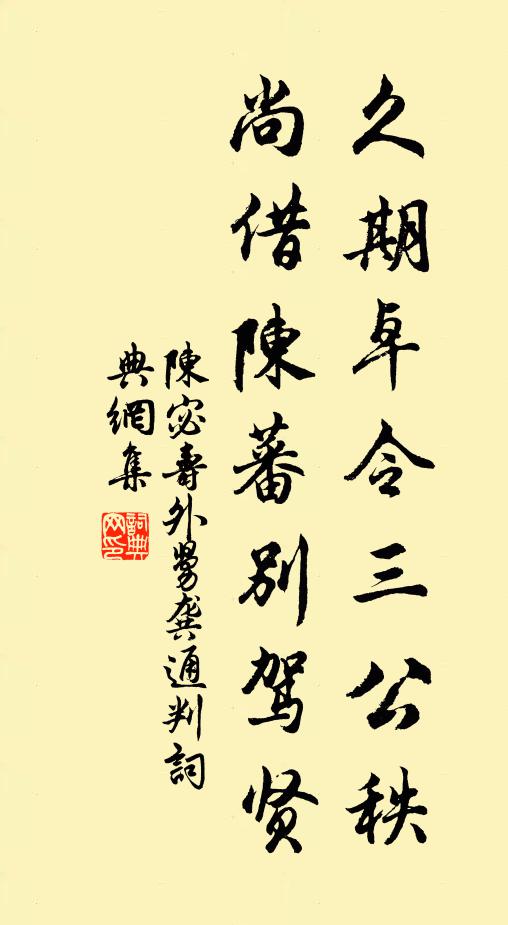 久期卓令三公秩
尚借陳蕃別駕贤
陳宓壽外舅龔通判詞
典網集
詞典網印